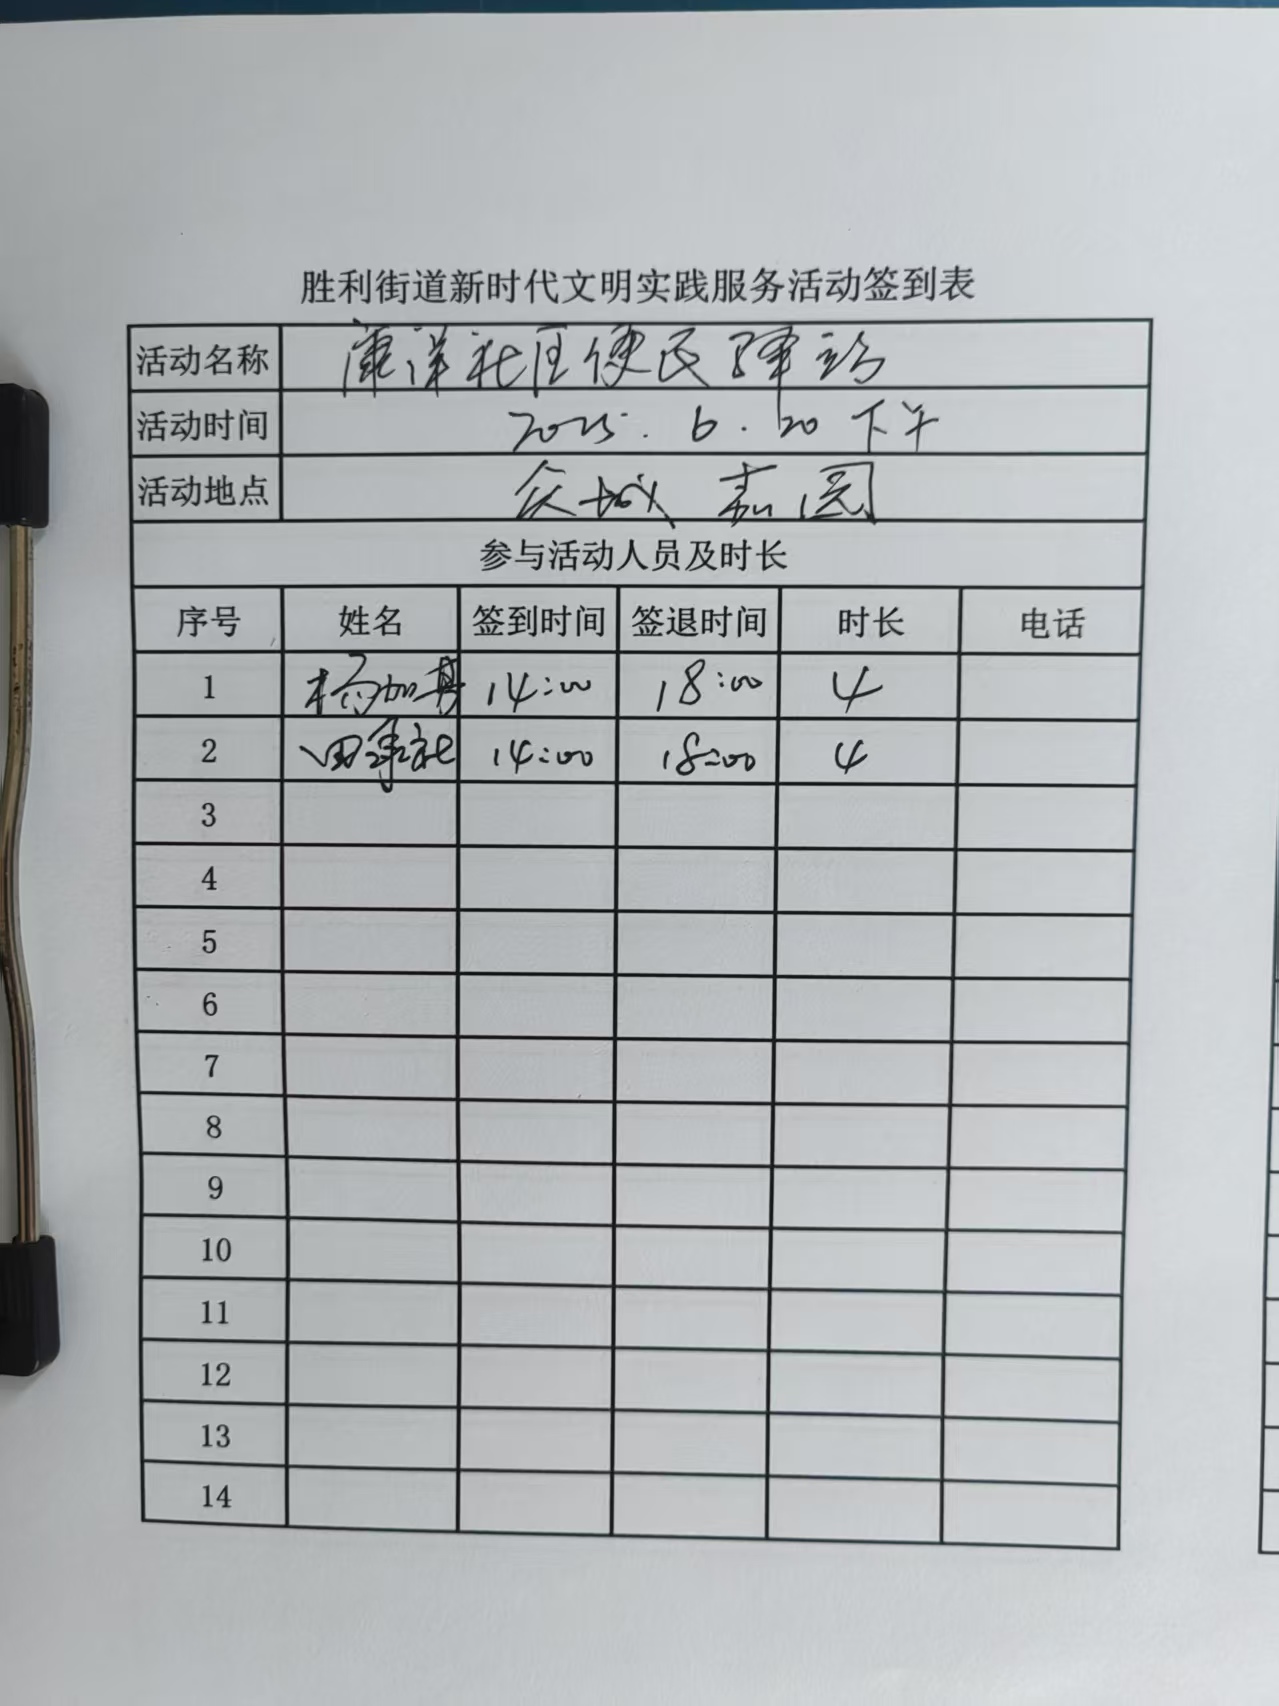 胜利街道新时代文明实践服务活动签到表
活动名称 康洋社区便民驿站
活动时间 2025.6.20下午
活动地点 众城嘉园
参与活动人员及时长
序号 姓名 签到时间 签退时间 时长 电话
1 杨加其 14:00 18:00 4
2 田承社 14:00 18:00 4
3
4
5
6
7
8
9
10
11
12
13
14